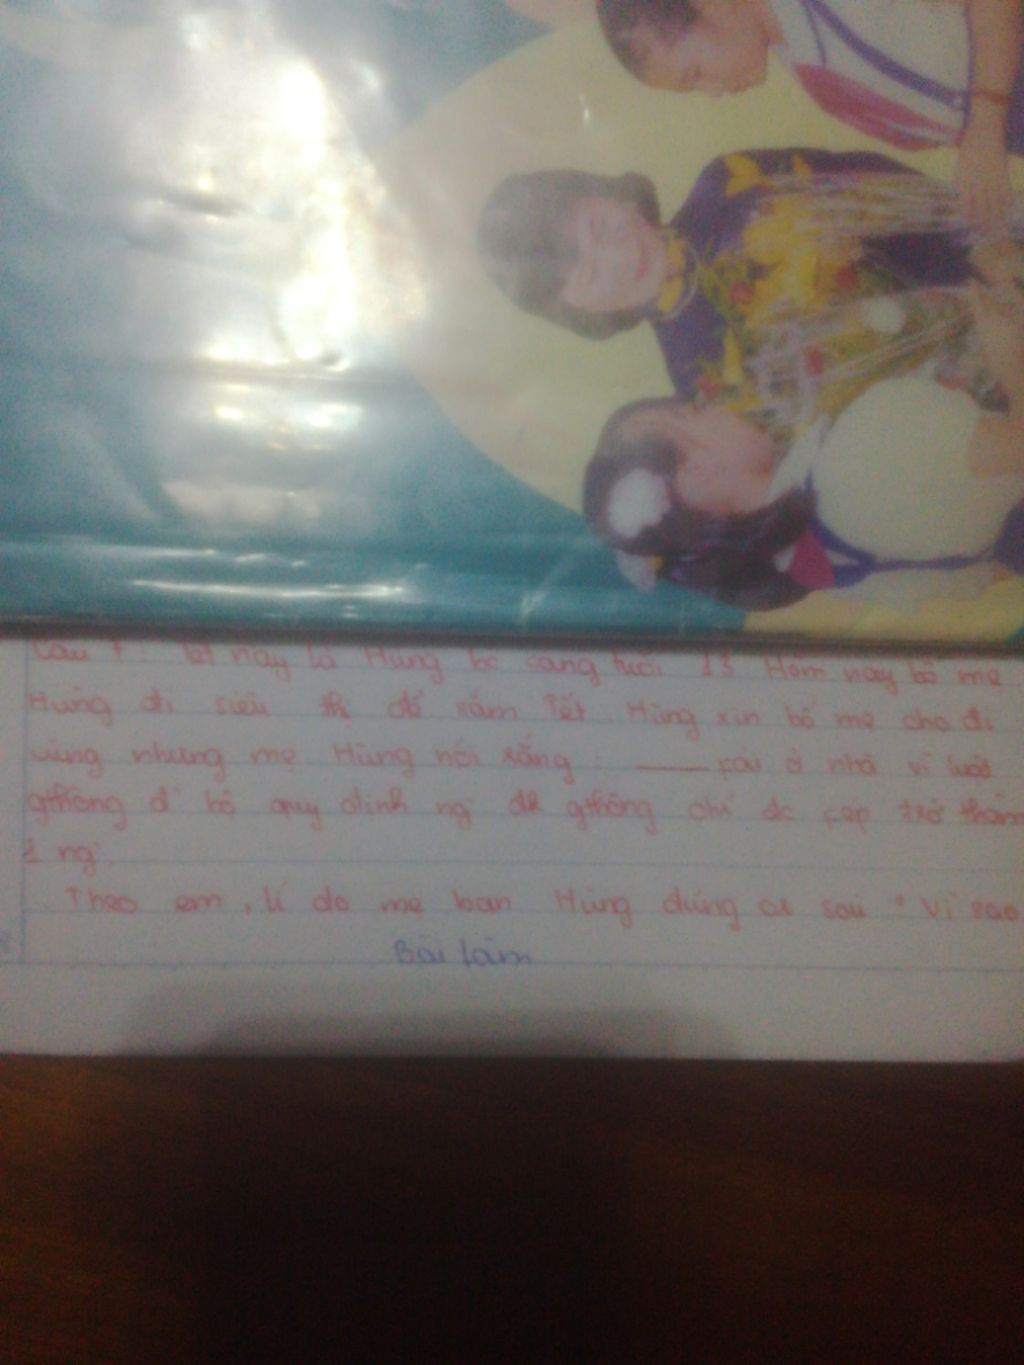 Câu 7: Tết này là Hùng bc sang tuổi 13 Hôm nay bố mẹ
Hùng đi siêu thị để sắm Tết. Hùng xin bố mẹ cho đi
cùng nhưng mẹ Hùng nói rằng: ____ fải ở nhà vì luật
gthông đ bộ quy định ng đk gthông chỉ đc fép trở thêm
1 ng.
Theo em, lí do mẹ bạn Hùng đúng or sai? Vì sao
Bài làm